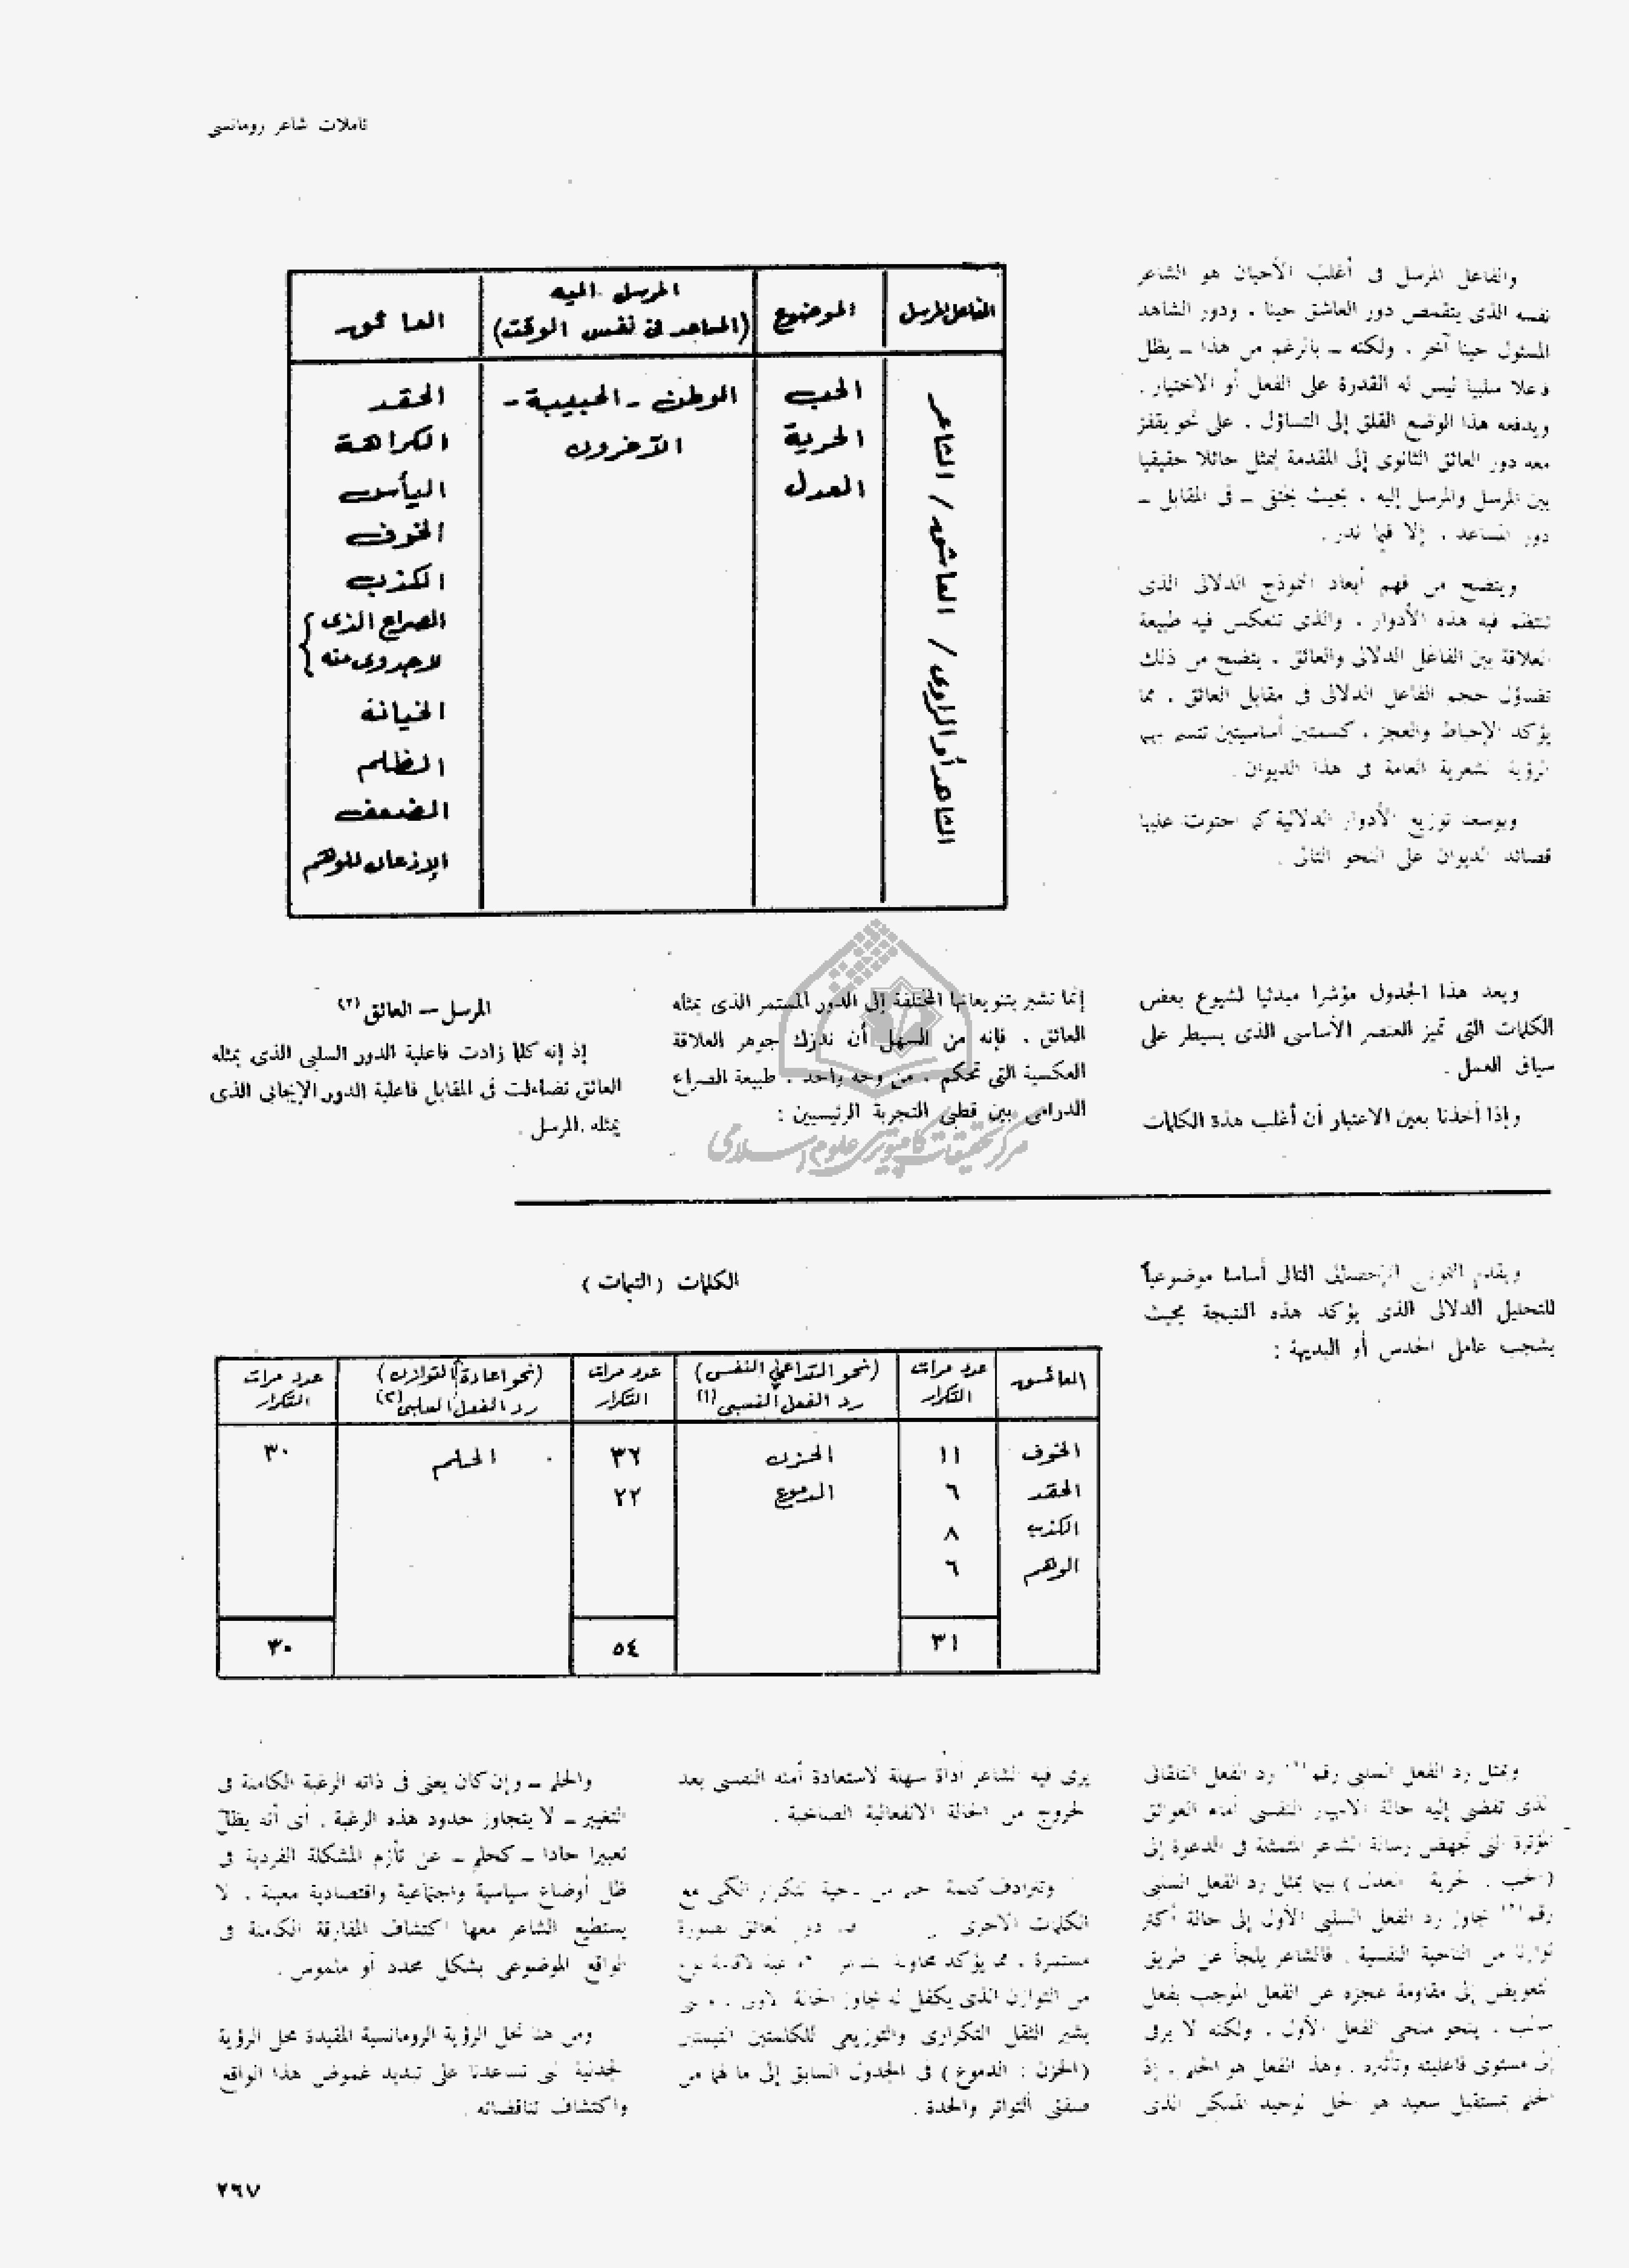 تأملات شاعر رومانسى
والفاعل المرسل فى أغلب الأحيان هو الشاعر
نفسه الذى يتقمص دور العاشق حينا ، ودور الشاهد
المسئول حينا آخر ، ولكنه ــ بالرغم من هذا ــ يظل
فاعلا سلبيا ليس له القدرة على الفعل أو الاختيار .
ويدفعه هذا الوضع القلق إلى التساؤل ، على نحو يقفز
معه دور العائق الثانوى إلى المقدمة ليمثل حائلا حقيقيا
بين المرسل والمرسل إليه ، بحيث يختفى ــ فى المقابل ــ
دور المساعد ، إلا فيما ندر .
ويتضح من فهم أبعاد النموذج الدلالى الذى
تنتظم فيه هذه الأدوار ، والذي تنعكس فيه طبيعة
العلاقة بين الفاعل الدلالى والعائق ، يتضح من ذلك
تضاؤل حجم الفاعل الدلالى فى مقابل العائق ، مما
يؤكد الإحباط والعجز ، كسمتين أساسيتين تتسم بهما
الرؤية الشعرية العامة فى هذا الديوان .
وبوسعنا توزيع الأدوار الدلالية كما احتوت عليها
قصائد الديوان على النحو التالى .
الفاعل المرسل
الموضوع
المرسل اليه
(المساعد فى نفس الوقت)
العائق
الشاعر / العاشق / الشاهد أو الراوى
الحب
الحرية
العدل
الوطن - الحبيبة -
الآخرون
الحقد
الكراهة
اليأس
الخوف
الكذب
الصراع الذى
لا جدوى منه
الخيانة
الظلم
الضعف
الإذعان للوهم
ويعد هذا الجدول مؤشرا مبدئيا لشيوع بعض
الكلمات التى تميز العنصر الأساسى الذى يسيطر على
سياق العمل .
وإذا أخذنا بعين الاعتبار أن أغلب هذه الكلمات
إنما تشير بتنويعاتها المختلفة إلى الدور المستمر الذى يمثله
العائق ، فإنه من السهل أن ندرك جوهر العلاقة
العكسية التي تحكم ، من وجه واحد ، طبيعة الصراع
الدرامى بين قطبى التجربة الرئيسيين :
المرسل ــ العائق (٣)
إذ إنه كلما زادت فاعلية الدور السلبى الذى يمثله
العائق تضاءلت فى المقابل فاعلية الدور الإيجابى الذى
يمثله المرسل .
مرکز تحقیقات کامپیوتری علوم اسلامی
ويقدم النموذج الإحصائى التالى أساسا موضوعياً
للتحليل الدلالى الذى يؤكد هذه النتيجة بحيث
يشجب عامل الحدس أو البديهة :
الكلمات (التيمات)
العائق
عدد مرات
التكرار
(نحو التداعي النفسى)
رد الفعل النفسى (١)
عدد مرات
التكرار
(نحو إعادة التوازن)
رد الفعل السلبى (٢)
عدد مرات
التكرار
الخوف ١١ الحزن ٣٢ الحلم ٣٠
الحقد ٦ الدموع ٢٢
الكذب ٨
الوهم ٦
٣١ ٥٤ ٣٠
ويمثل رد الفعل السلبى رقم (١) رد الفعل التلقائى
الذى تفضى إليه حالة الانهيار النفسى أمام العوائق
المؤثرة التى تجهض رسالة الشاعر المتمثلة فى الدعوة إلى
(الحب . الحرية . العدل) بينما يمثل رد الفعل السلبى
رقم (٢) تجاوز رد الفعل السلبى الأول إلى حالة أكثر
توازنا من الناحية النفسية . فالشاعر يلجأ عن طريق
التعويض إلى مقاومة عجزه عن الفعل الموجب بفعل
سالب ، ينحو منحى الفعل الأول ، ولكنه لا يرقى
إلى مستوى فاعليته وتأثيره . وهذا الفعل هو الحلم ، إذ
الحلم بمستقبل سعيد هو الحل الوحيد الممكن الذى
يرى فيه الشاعر أداة سهلة لاستعادة أمنه النفسى بعد
الخروج من الحالة الانفعالية الصاخبة .
وتترادف كلمة حلم من ناحية التكرار الكمى مع
الكلمات الأخرى دور العائق بصورة
مستمرة ، مما يؤكد محاولة الشاعر إقامة نوع
من التوازن الذى يكفل له تجاوز الحالة الأولى ،
يشير الثقل التكرارى والتوزيعى للكلمتين القيمتين
(الحزن : الدموع) فى الجدول السابق إلى ما لهما من
صفتى التواتر والحدة .
والحلم ــ وإن كان يعنى فى ذاته الرغبة الكامنة فى
التغيير ــ لا يتجاوز حدود هذه الرغبة ، أى أنه يظل
تعبيرا حادا ــ كحلم ــ عن تأزم المشكلة الفردية فى
ظل أوضاع سياسية واجتماعية واقتصادية معينة ، لا
يستطيع الشاعر معها اكتشاف المفارقة الكامنة فى
الواقع الموضوعى بشكل محدد أو ملموس .
ومن هنا تحل الرؤية الرومانسية المقيدة محل الرؤية
الجدلية التى تساعدنا على تبديد غموض هذا الواقع
واكتشاف تناقضاته .
٢٦٧